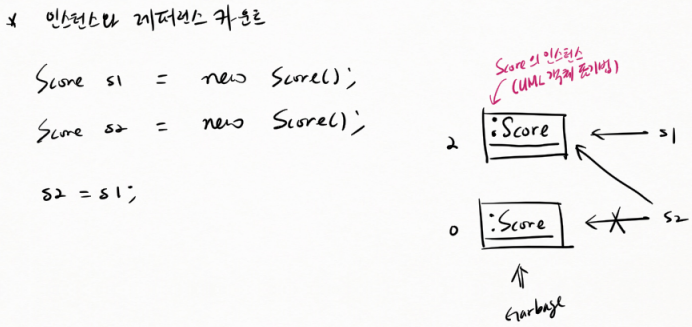 * 인스턴스와 레퍼런스 카운트
Score s1 = new Score();
Score s2 = new Score();
s2 = s1;
Score의 인스턴스
(UML 객체 표기법)
2 :Score s1
0 :Score s2
Garbage